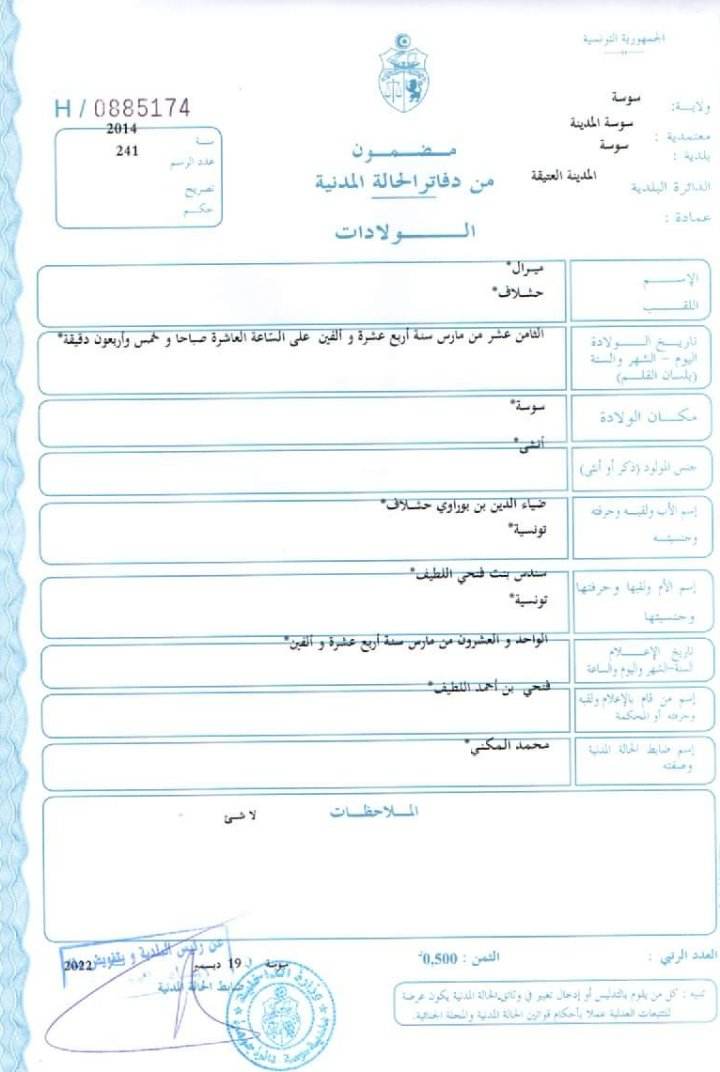 الجمهورية التونسية
ولاية: سوسة
معتمدية : سوسة المدينة
بلدية : سوسة
الدائرة البلدية المدينة العتيقة
عمادة :
H / 0885174
سنة 2014
عدد الرسم 241
تصريح
حكم
مضمون
من دفاتر الحالة المدنية
الولادات
الإسم ميرال*
اللقب حشلاف*
تاريخ الولادة
اليوم - الشهر والسنة
(بلسان القلم)
الثامن عشر من مارس سنة أربع عشرة و ألفين على الساعة العاشرة صباحا و خمس وأربعون دقيقة*
مكان الولادة سوسة*
جنس المولود (ذكر أو أنثى) أنثى*
إسم الأب ولقبه وحرفته
وجنسيته
ضياء الدين بن بوراوي حشلاف*
تونسية*
إسم الأم ولقبها وحرفتها
وجنسيتها
سندس بنت فتحي اللطيف*
تونسية*
تاريخ الإعلام
السنة-الشهر واليوم والساعة
الواحد و العشرون من مارس سنة أربع عشرة و ألفين*
إسم من قام بالإعلام ولقبه
وحرفته أو المحكمة
فتحي بن أحمد اللطيف*
إسم ضابط الحالة المدنية
وصفته
محمد المكني*
الملاحظات
لا شئ
العدد الرتبي :
الثمن : 0,500د
تنبيه : كل من يقوم بالتدليس أو إدخال تغيير في وثائق الحالة المدنية يكون عرضة
للتتبعات العدلية عملا بأحكام قوانين الحالة المدنية والمجلة الجنائية.
سوسة 19 ديسمبر 2022
ضابط الحالة المدنية
عن رئيس البلدية و بتفويض
وزارة الداخلية